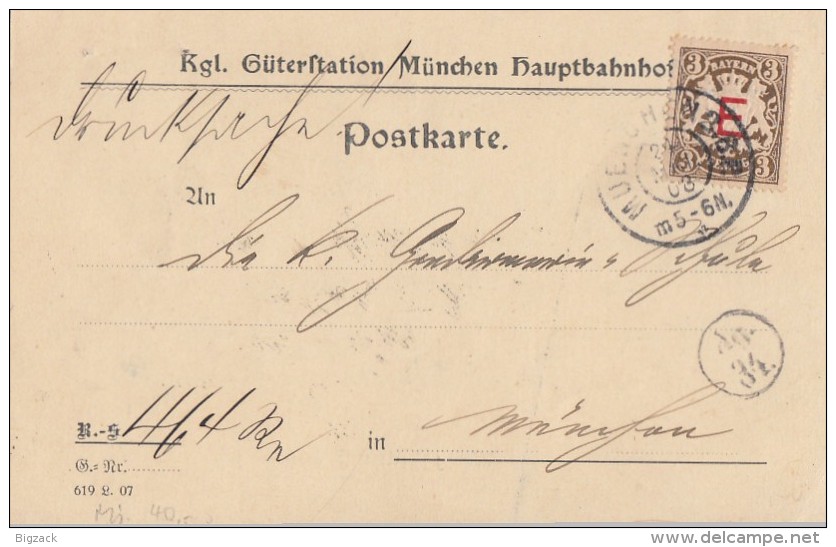 Kgl. Güterstation München Hauptbahnhof
Drucksache
Postkarte.
3 BAYERN 3
E
3 3
MUENCHEN
08
m5-6N.
An
die K. Gendarmerie-Schule
34.
R.-S 464
G.-Nr.
in München
619 L. 07
Mi. 40,-
Bigzack
delcampe.net